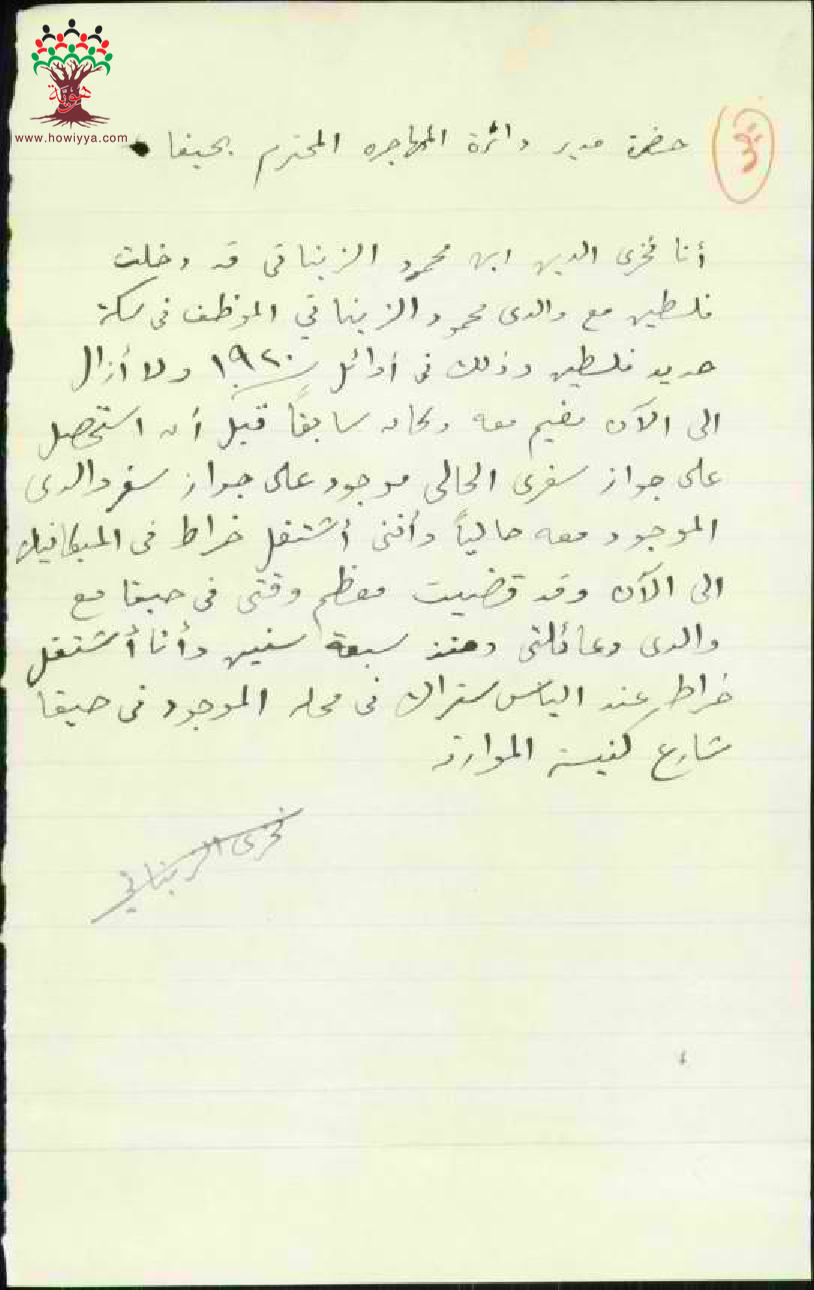 هوية
www.howiyya.com
حضرة مدير دائرة المهاجره المحترم بحيفا
أنا فخرى الدين ابن محمود الزيناتي قد دخلت
فلسطين مع والدى محمود الزيناتي الموظف فى سكة
حديد فلسطين وذلك فى أوائل سنة ١٩٢٠ ولا أزال
الى الآن مقيم معه وكان سابقاً قبل أن استحصل
على جواز سفرى الحالى موجود على جواز سفر والدى
الموجود معه حالياً وأننى أشتغل خراط فى الميكانيك
الى الآن وقد قضيت معظم وقتى فى حيفا مع
والدى وعائلتى ومنذ سبعة سنين وأنا أشتغل
خراط عند الياس ستراك فى محله الموجود فى حيفا
شارع كنيسة الموارنه
فخرى الزيناتي